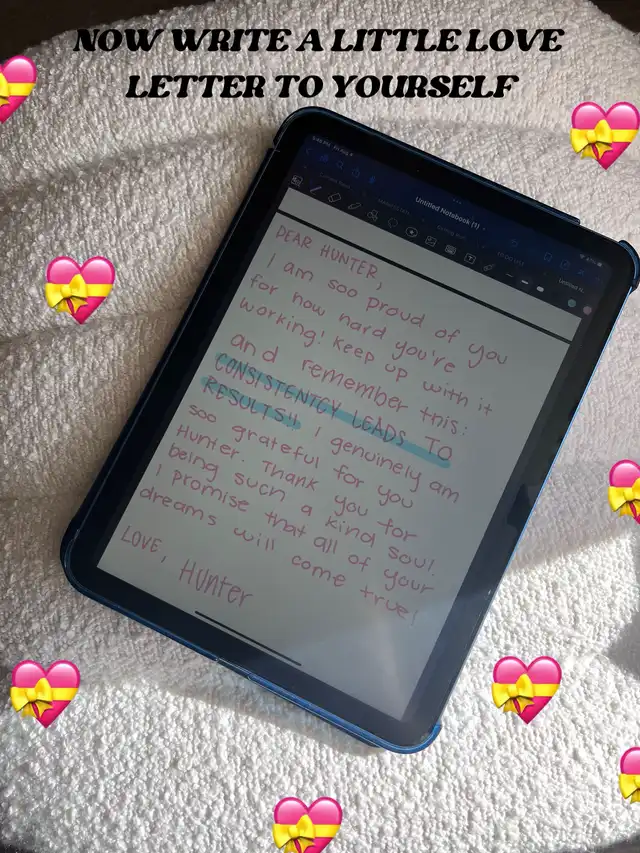 NOW WRITE A LITTLE LOVE
LETTER TO YOURSELF
Untitled Notebook (1)
DEAR HUNTER,
I am soo proud of you
for how hard you're
working! Keep up with it
and remember this:
CONSISTENTCY LEADS TO
RESULTS!! I genuinely am
soo grateful for you
Hunter. Thank you for
being such a kind soul.
I promise that all of your
dreams will come true!
LOVE, Hunter